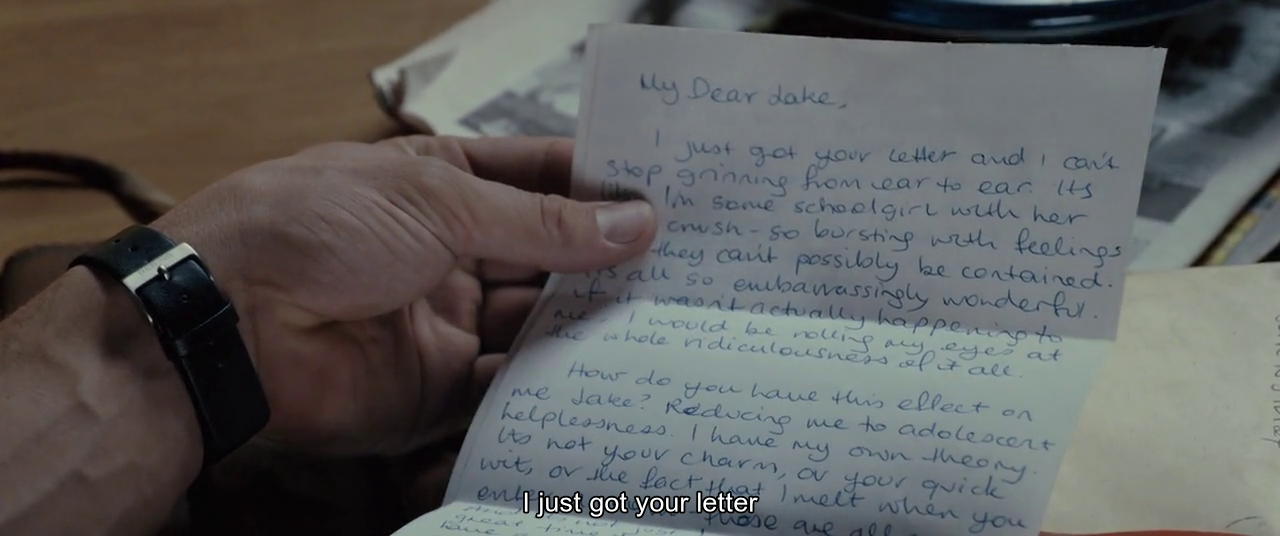 My Dear Jake,
I just got your letter and I can't
stop grinning from ear to ear. Its
like I'm some schoolgirl with her
crush - so bursting with feelings
they can't possibly be contained.
Its all so embarrassingly wonderful.
if it wasn't actually happening to
me - I would be rolling my eyes at
the whole ridiculousness of it all.
How do you have this effect on
me Jake? Reducing me to adolescent
helplessness. I have my own theory.
Its not your charm, or your quick
wit, or the fact that I melt when you
those are all
I just got your letter